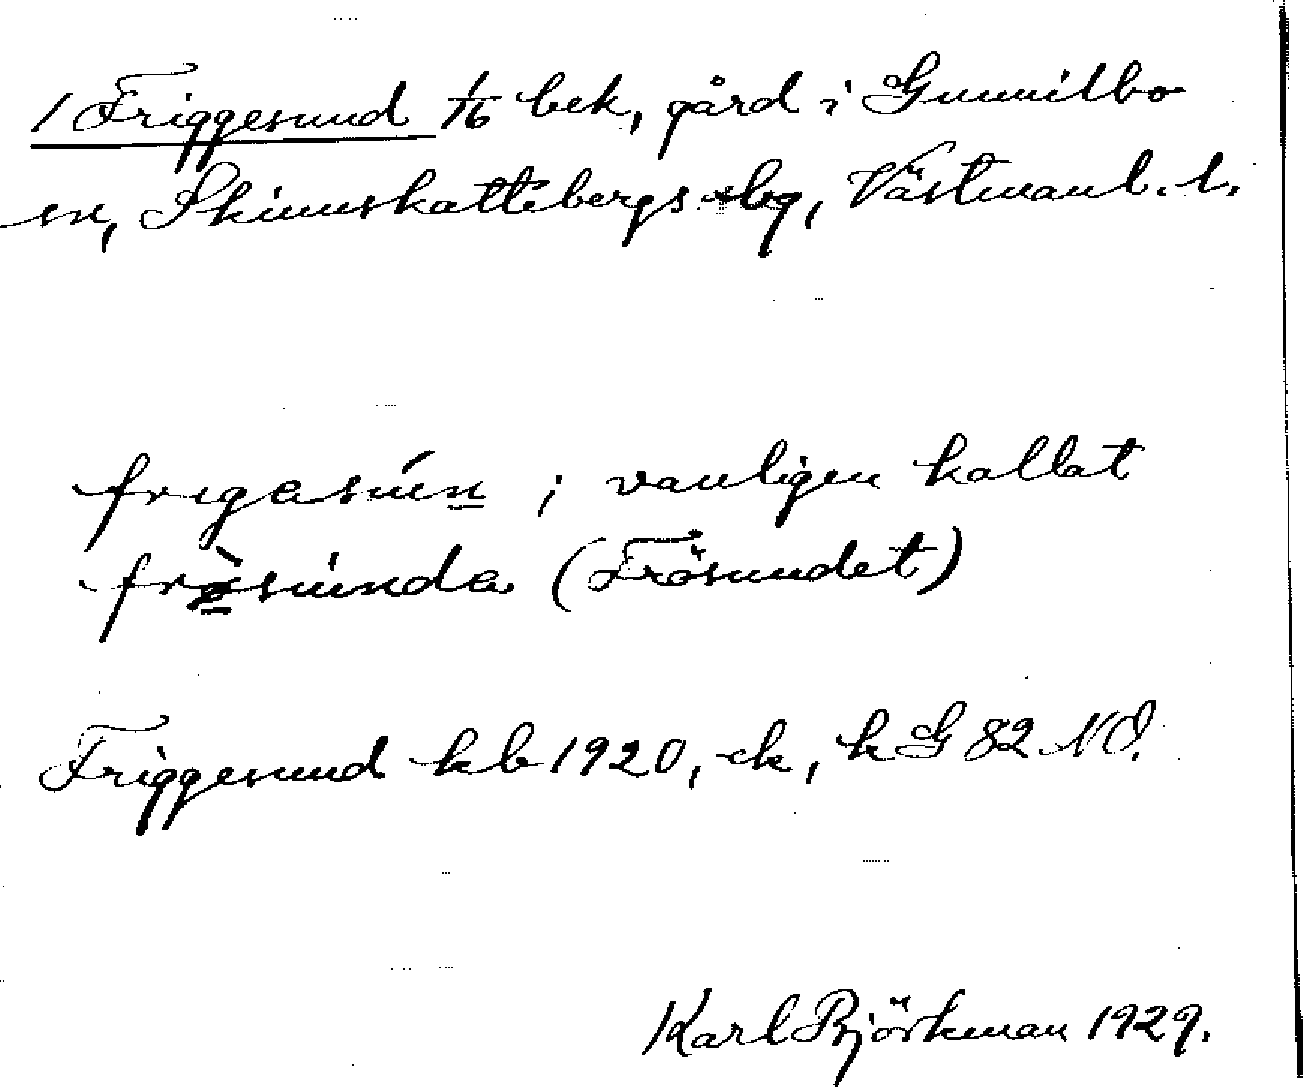 1 Friggesund 1/16 bek, gård i Gunnilbo
sn, Skinnskattebergs bg, Västmanl. l.
frigasún ; vanligen kallat
frö̀súnda (Frösundet)
Friggesund kb 1920, ek, k G 82 NO.
Karl Björkman 1929.